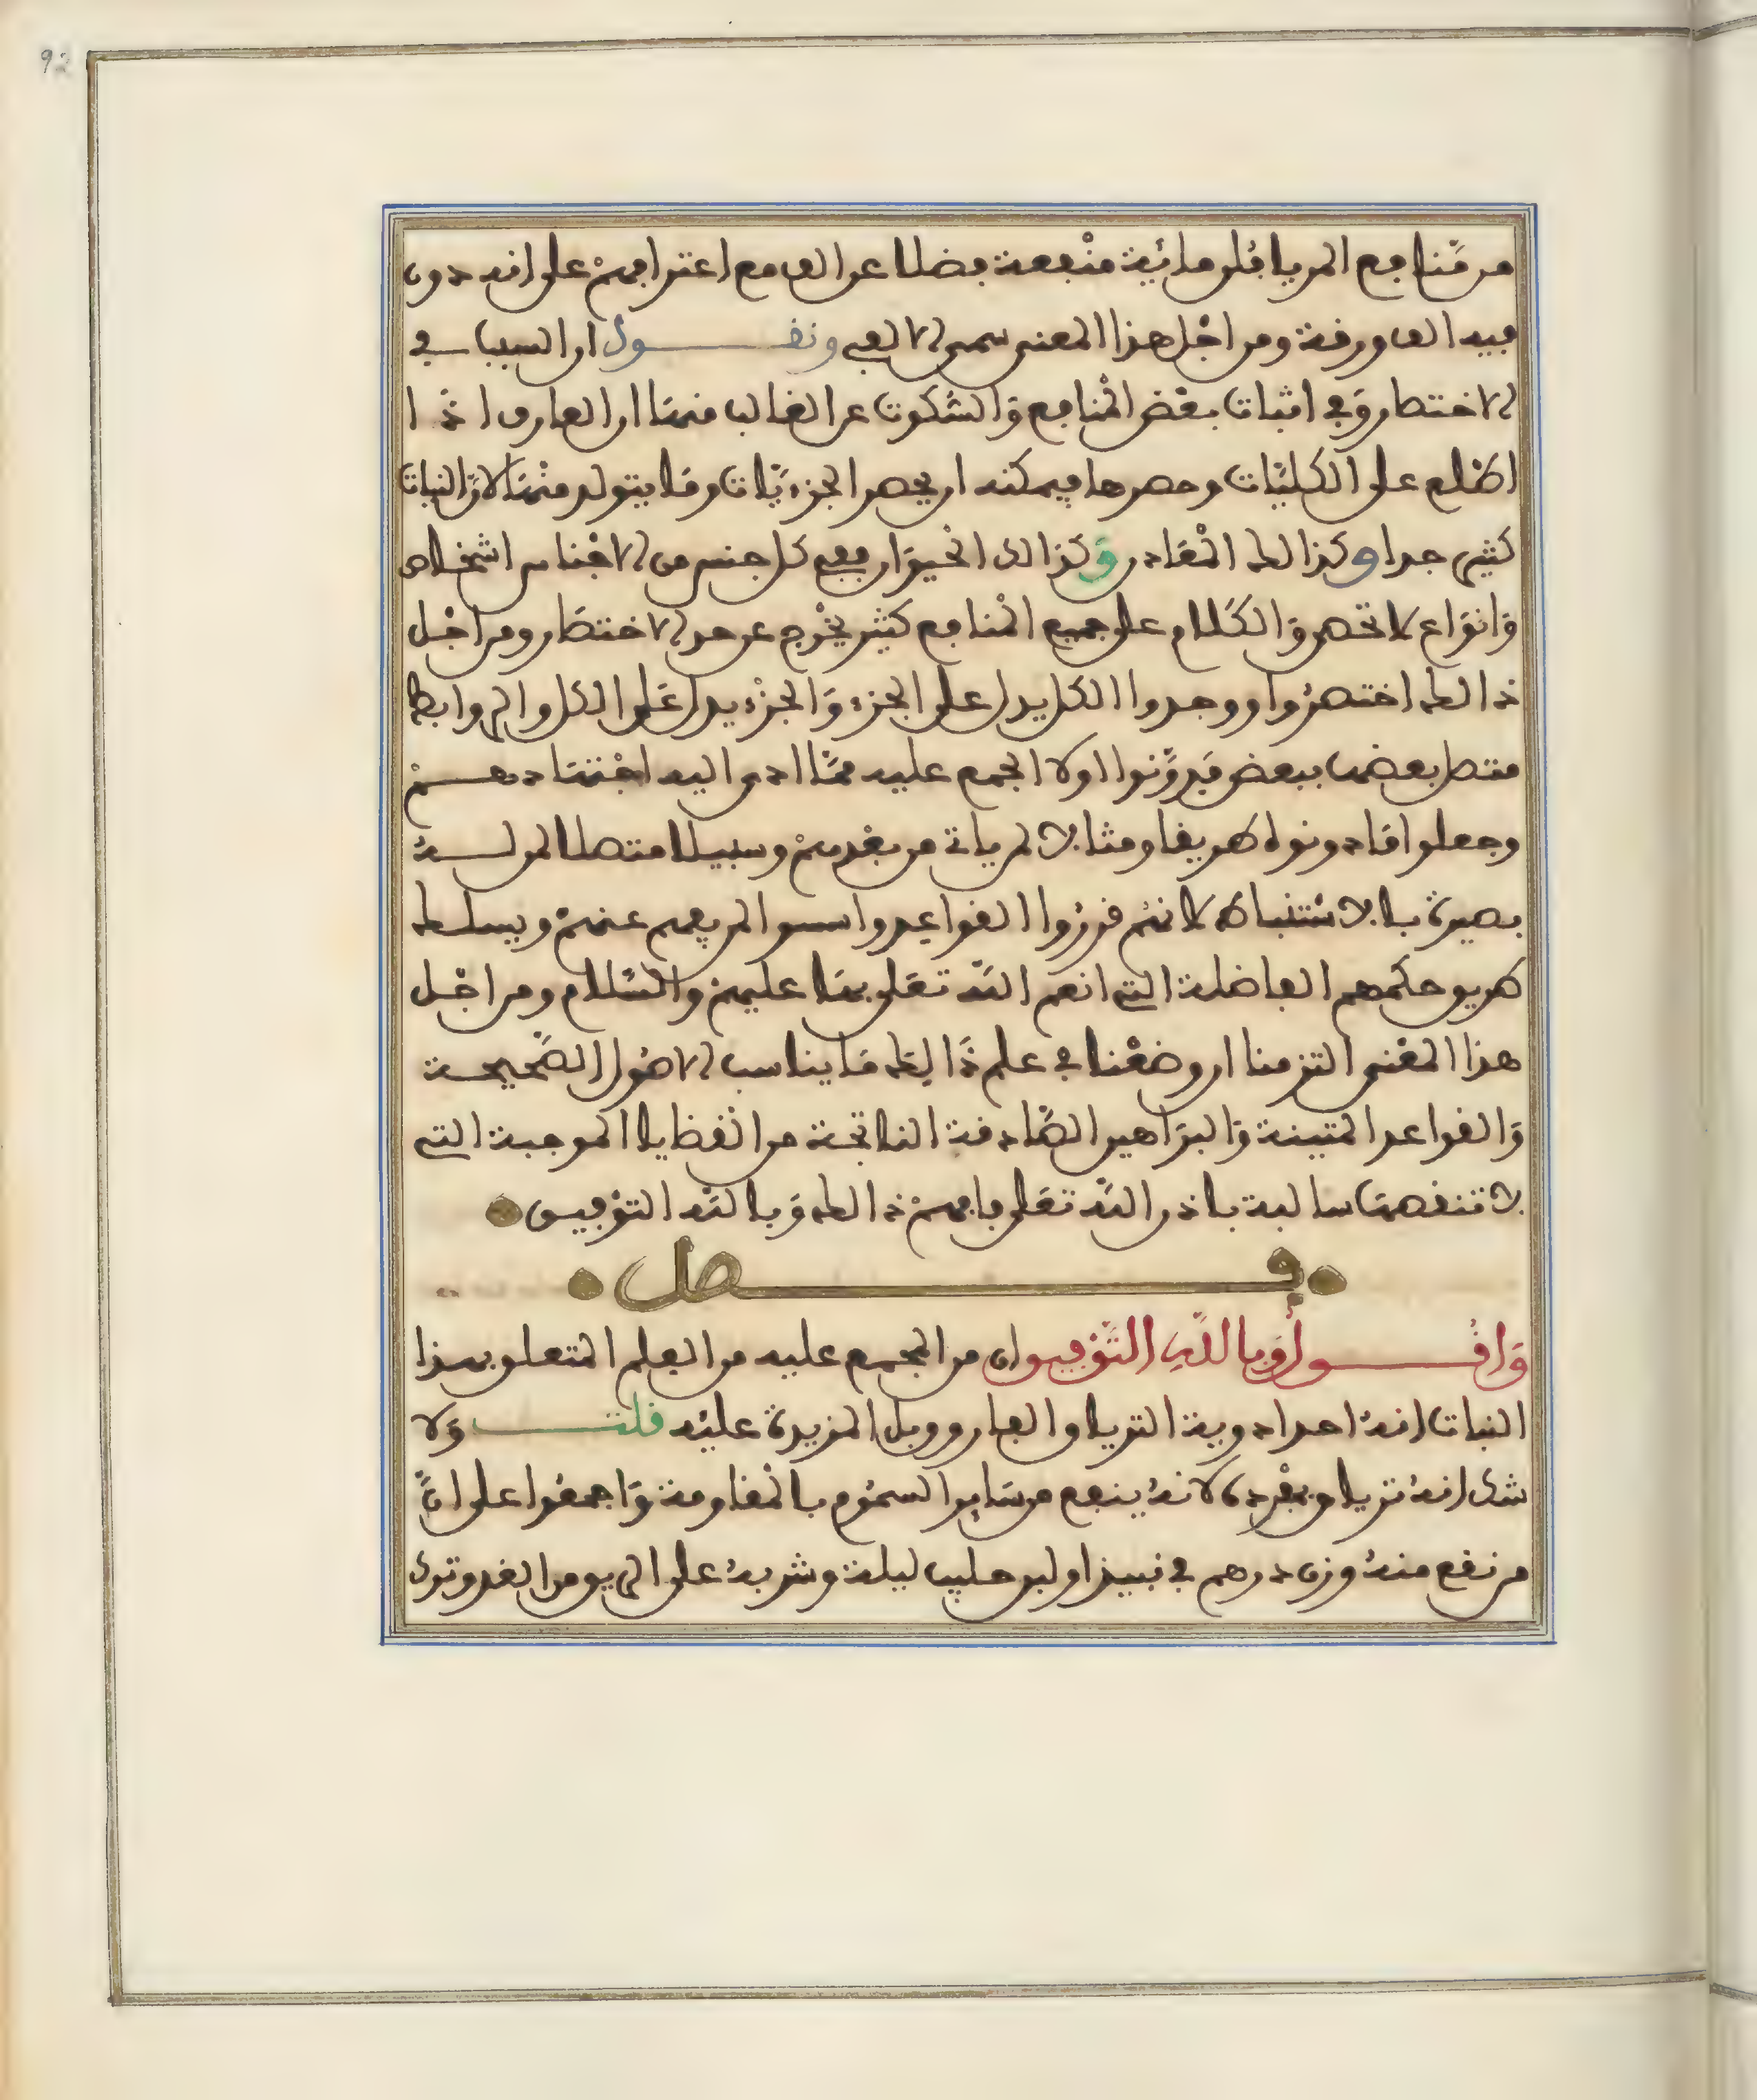 92
من منافع المريافلن مائية منفعة فضلا عن الف مع اعترافهم على انه دون
فيه الف ورقة ومن اجل هذا المعنى سمي الالفي ونقول ان السبب في
الاختصار وفي اثبات بعض المنافع والسكوت عن الغالب منها ان العارف اذا
اطلع على الكليات وحصرها فيمكنه ان يحصر الجزءيات وما يتولد منها لان النبات
كثير جدا وكذالك المعادن وكذالك الحيوان ففي كل جنس من الاجناس اشخاص
وانواع لا تحصى والكلام على جميع المنافع كثير يخرج عن حد الاختصار ومن اجل
ذالك اختصروا ووجدوا الكل يدل على الجزء والجزء يدل على الكل والروابط
متصل بعضها ببعض فدونوا اولا المجمع عليه مما ادى اليه اجتهادهم
وجعلوا مادونوه طريقا ومثالا لمن ياتي من بعدهم وسبيلا متصلا لمن له
بصيرة بالاستنباط لانهم قرروا القواعد واسسوا لمن يفهم عنهم ويسلك
طريق حكمهم الفاضلة التي انعم الله تعلى بها عليهم والسلام ومن اجل
هذا المعنى التزمنا ان وضعنا في علم ذالك ما يناسب الاصول الصحيحة
والقواعد المتينة والبراهين الصادقة الناتجة من القضايا الموجبة التي
لا تنقصها سالبة باذن الله تعلى فافهم ذالك وبالله التوفيق
فصل
واقول وبالله التوفيق ان من المجمع عليه من العلم المتعلق بهذا
النبات انه احد ادوية الترياق والفاروق بل المزيدة عليه قلت ولا
شك انه ترياق بمفرده لانه ينفع من ساير السموم بالمقاومة واجمعوا على ان
من نقع منه وزن درهم في نبيذ او لبن حليب ليلة وشربه على الريق من الغد وترك